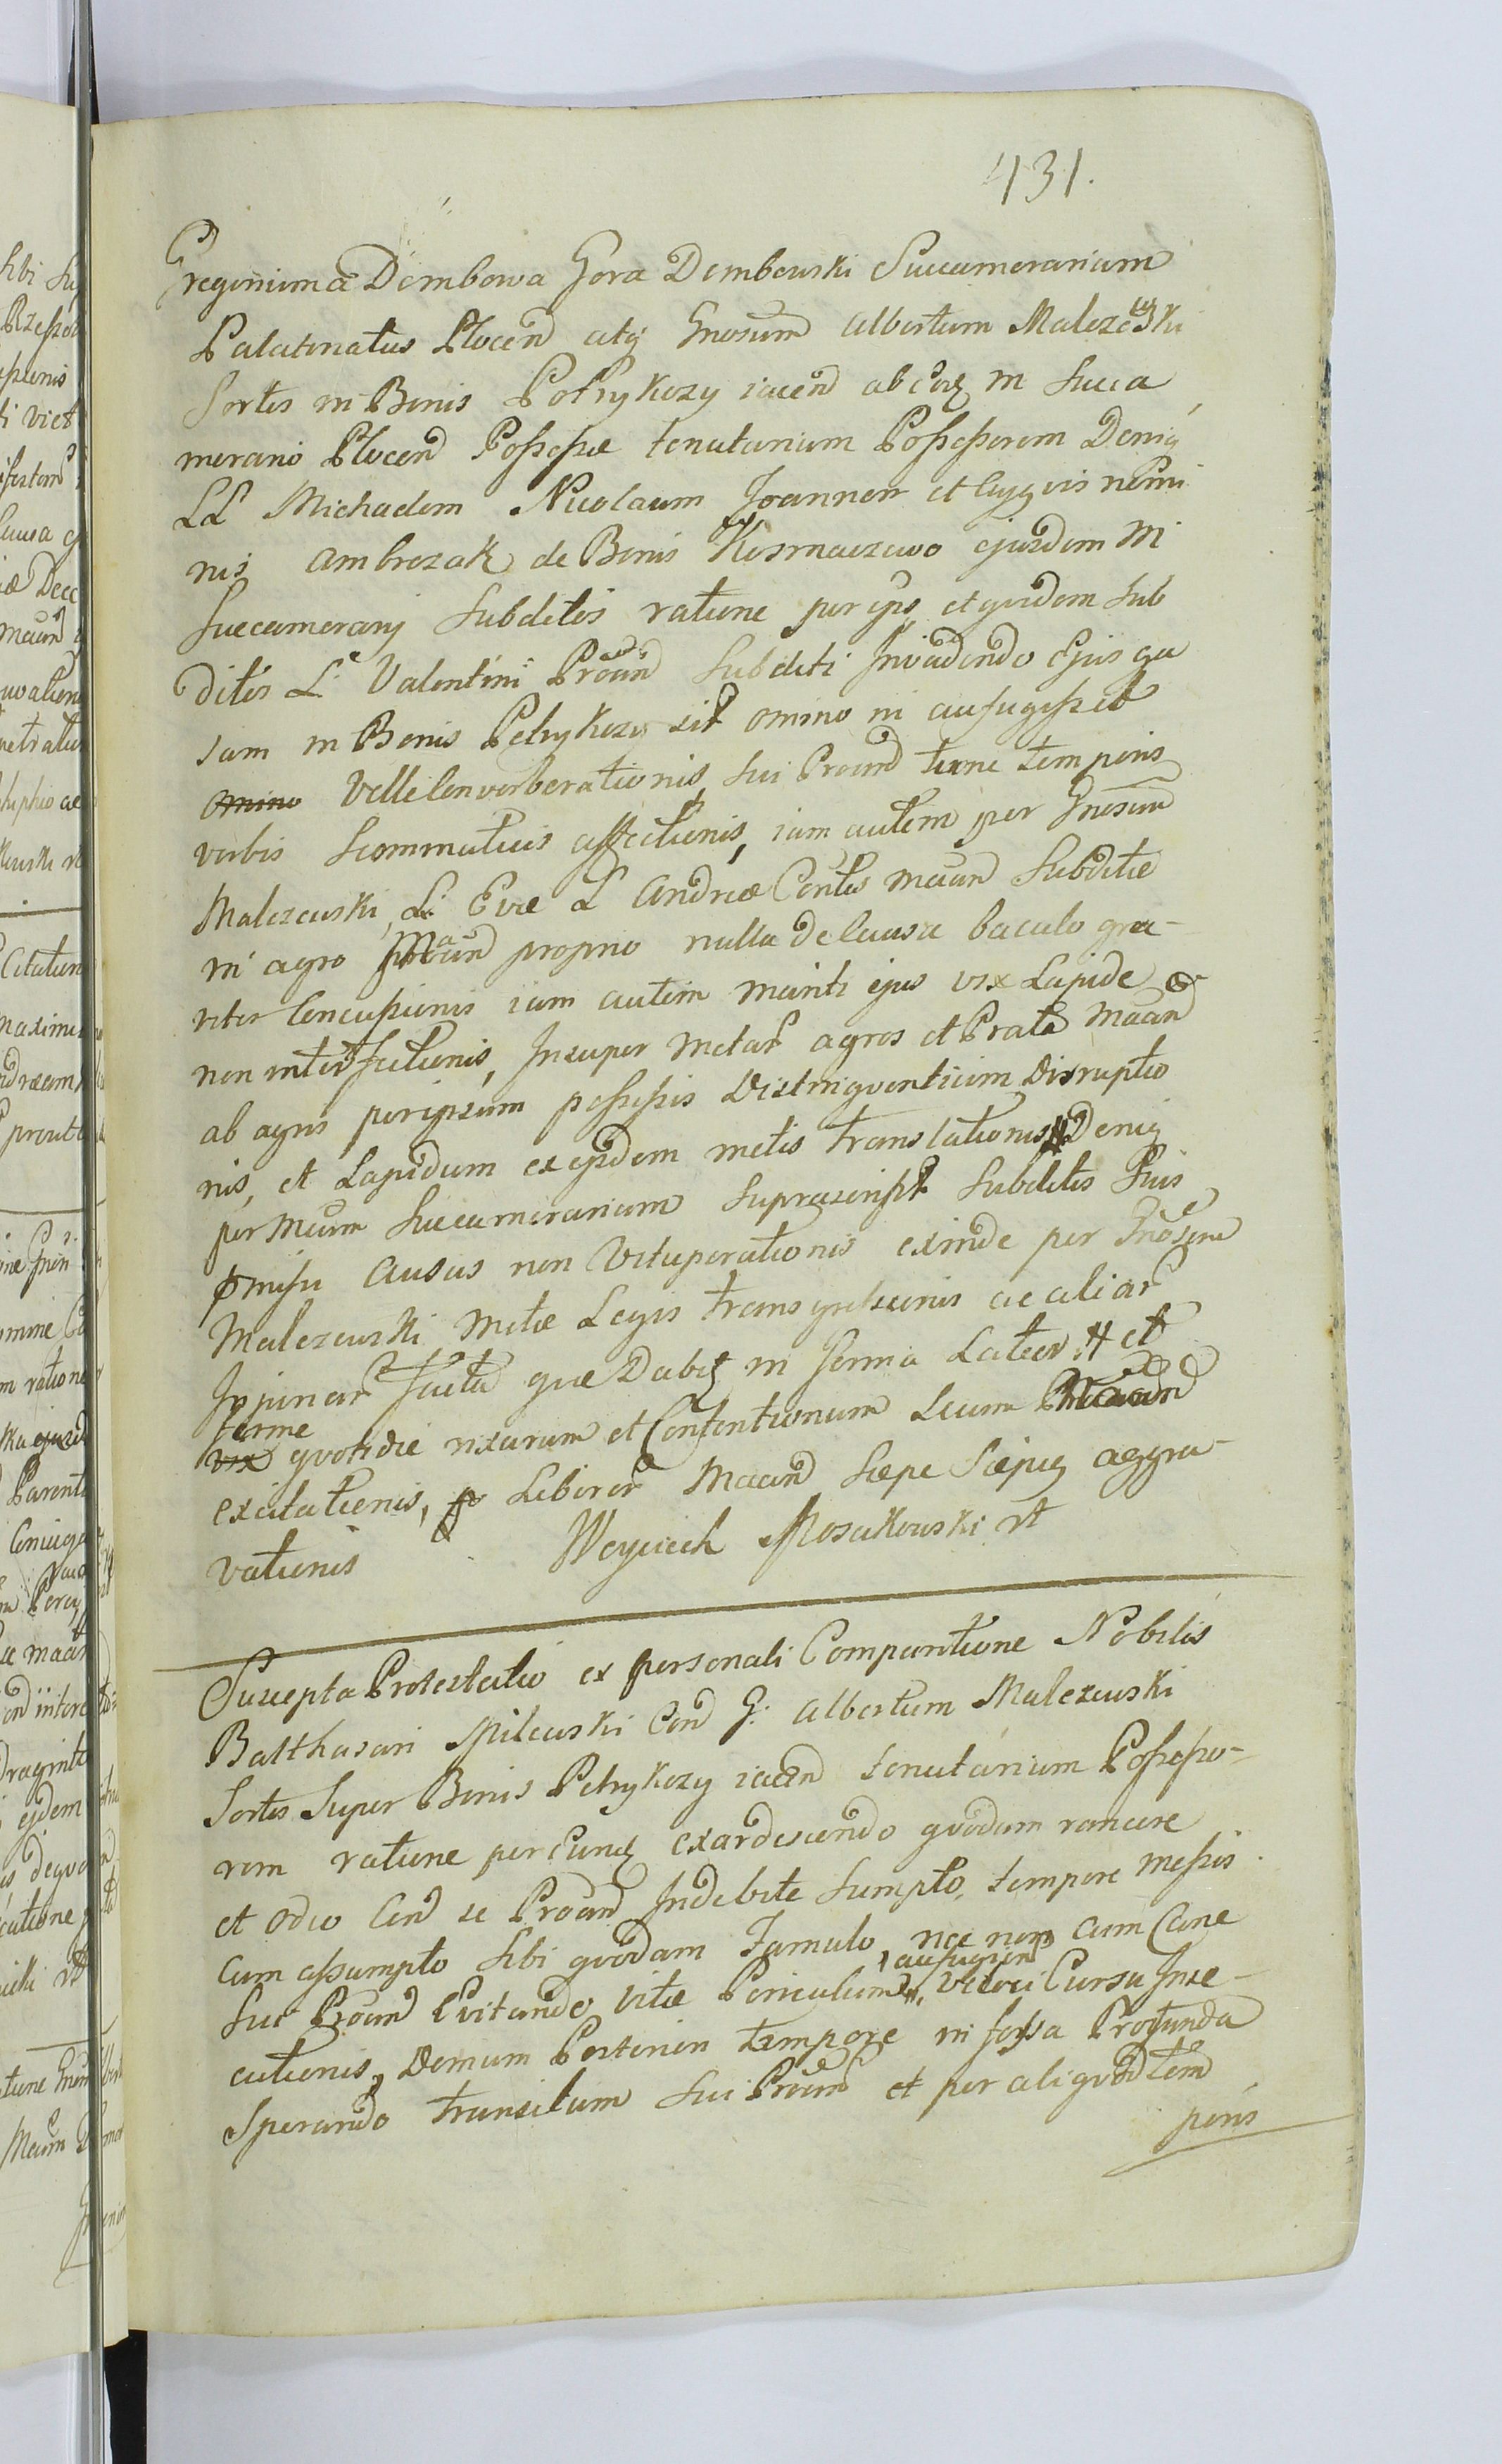 431.
Greginium a Dembowa Gora Dembowski Succamerarium
Palatinatus Plocen atq Gnosum Albertum Malezewski
Sortis in Bonis Petrykozy iacen ab eodq M Succa
merario Plocen Possessæ tenutarium Possessorem Deniq
LL Michaelem Nicolaum Joannem et cujqvis nomi
nis Ambrozak de Bonis Kosmaczewo ejusdem M
Succamerarij Subditos ratione per ipos et qvidem Sub
ditos L. Valentini Proan Subditi Invadendo Ejus ga
sam in Bonis Petrykozy sit omino ni aufugisset
omino Vellelenverberationis, Sui Proan tunc temporis
verbis Scommaticis affectionis, iam autem per Gnosum
Malezewski, L: Evæ L Andreæ Contis maan Subditæ
in agro Maan proprio nulla de causa baculo gra-
viter Concussionis iam autem mariti ejus vix Lapide
non interfectionis, Insuper metar agros et Prata Maan
ab agris per ipsum possessis Distingventium Disruptio
nis, et Lapidum ex ejsdem metis translationis Deniq
per Mcum Succamerarium suprascript Subditis Suis
pmissu ausus non Vituperationis exinde per Gnosum
Malezewski metæ Legis transgressionis ac aliar
Injuriar factu quæ Dabq in forma Latior # et
ferme
vix qvotidie rixarum et Contentionum Secum Maan
excitationis, Liberor Maan Sæpe Sæpiq aggra-
vationis Woyciech Mosakowski rt
Suscepta Protestatio ex personali Comparitione Nobilis
Balthasari Milewski Con G: Albertum Malezewski
Sortis Super Bonis Petrykozy iacen tenutarium Possesso-
rem ratione per Eunq exardescendo qvodam rancore
et odio Con se Proan Indebite Sumpto, tempore messis
Cum assumpto Sibi qvodam Famulo nec non cum Cane
aufugien
Sui Proan Evitando Vitæ Periculum, Veloci Cursu Inse-
cutionis, Demum Posteriori tempore in fossa Profunda
Sperando transitum Sui Proan et per aliqvod tem
poris